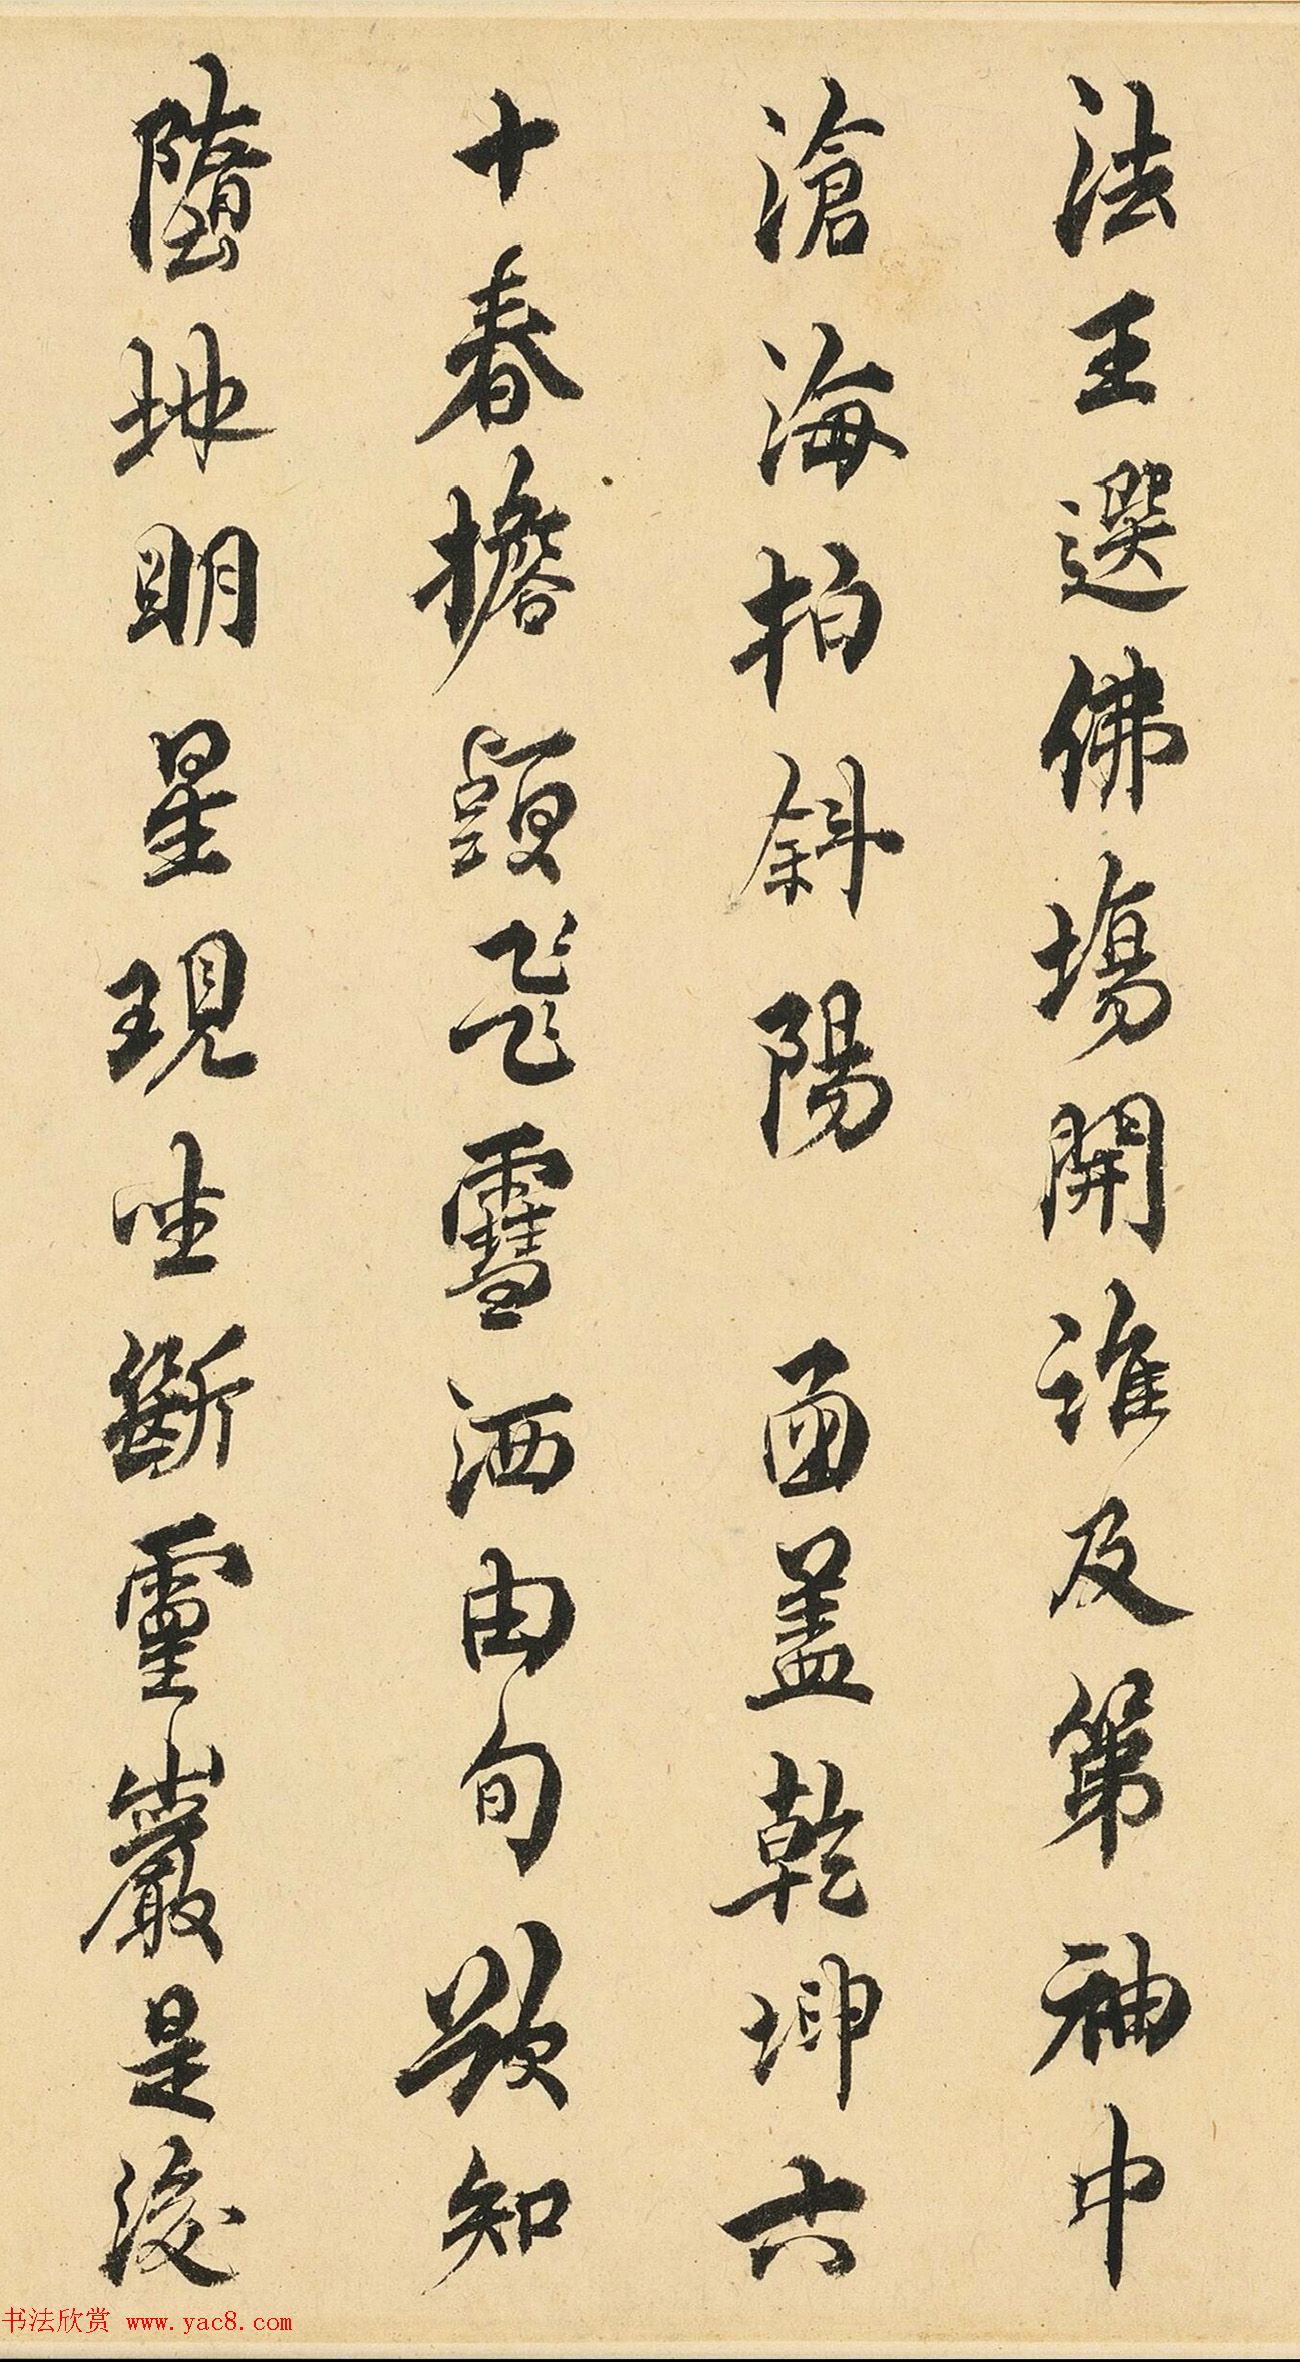 法王選佛場開誰及第袖中
滄海拍斜陽面蓋乾坤六
十春擔頭飛雪洒由旬欲知
墮地明星現坐斷靈巖是後
书法欣赏 www.yac8.com